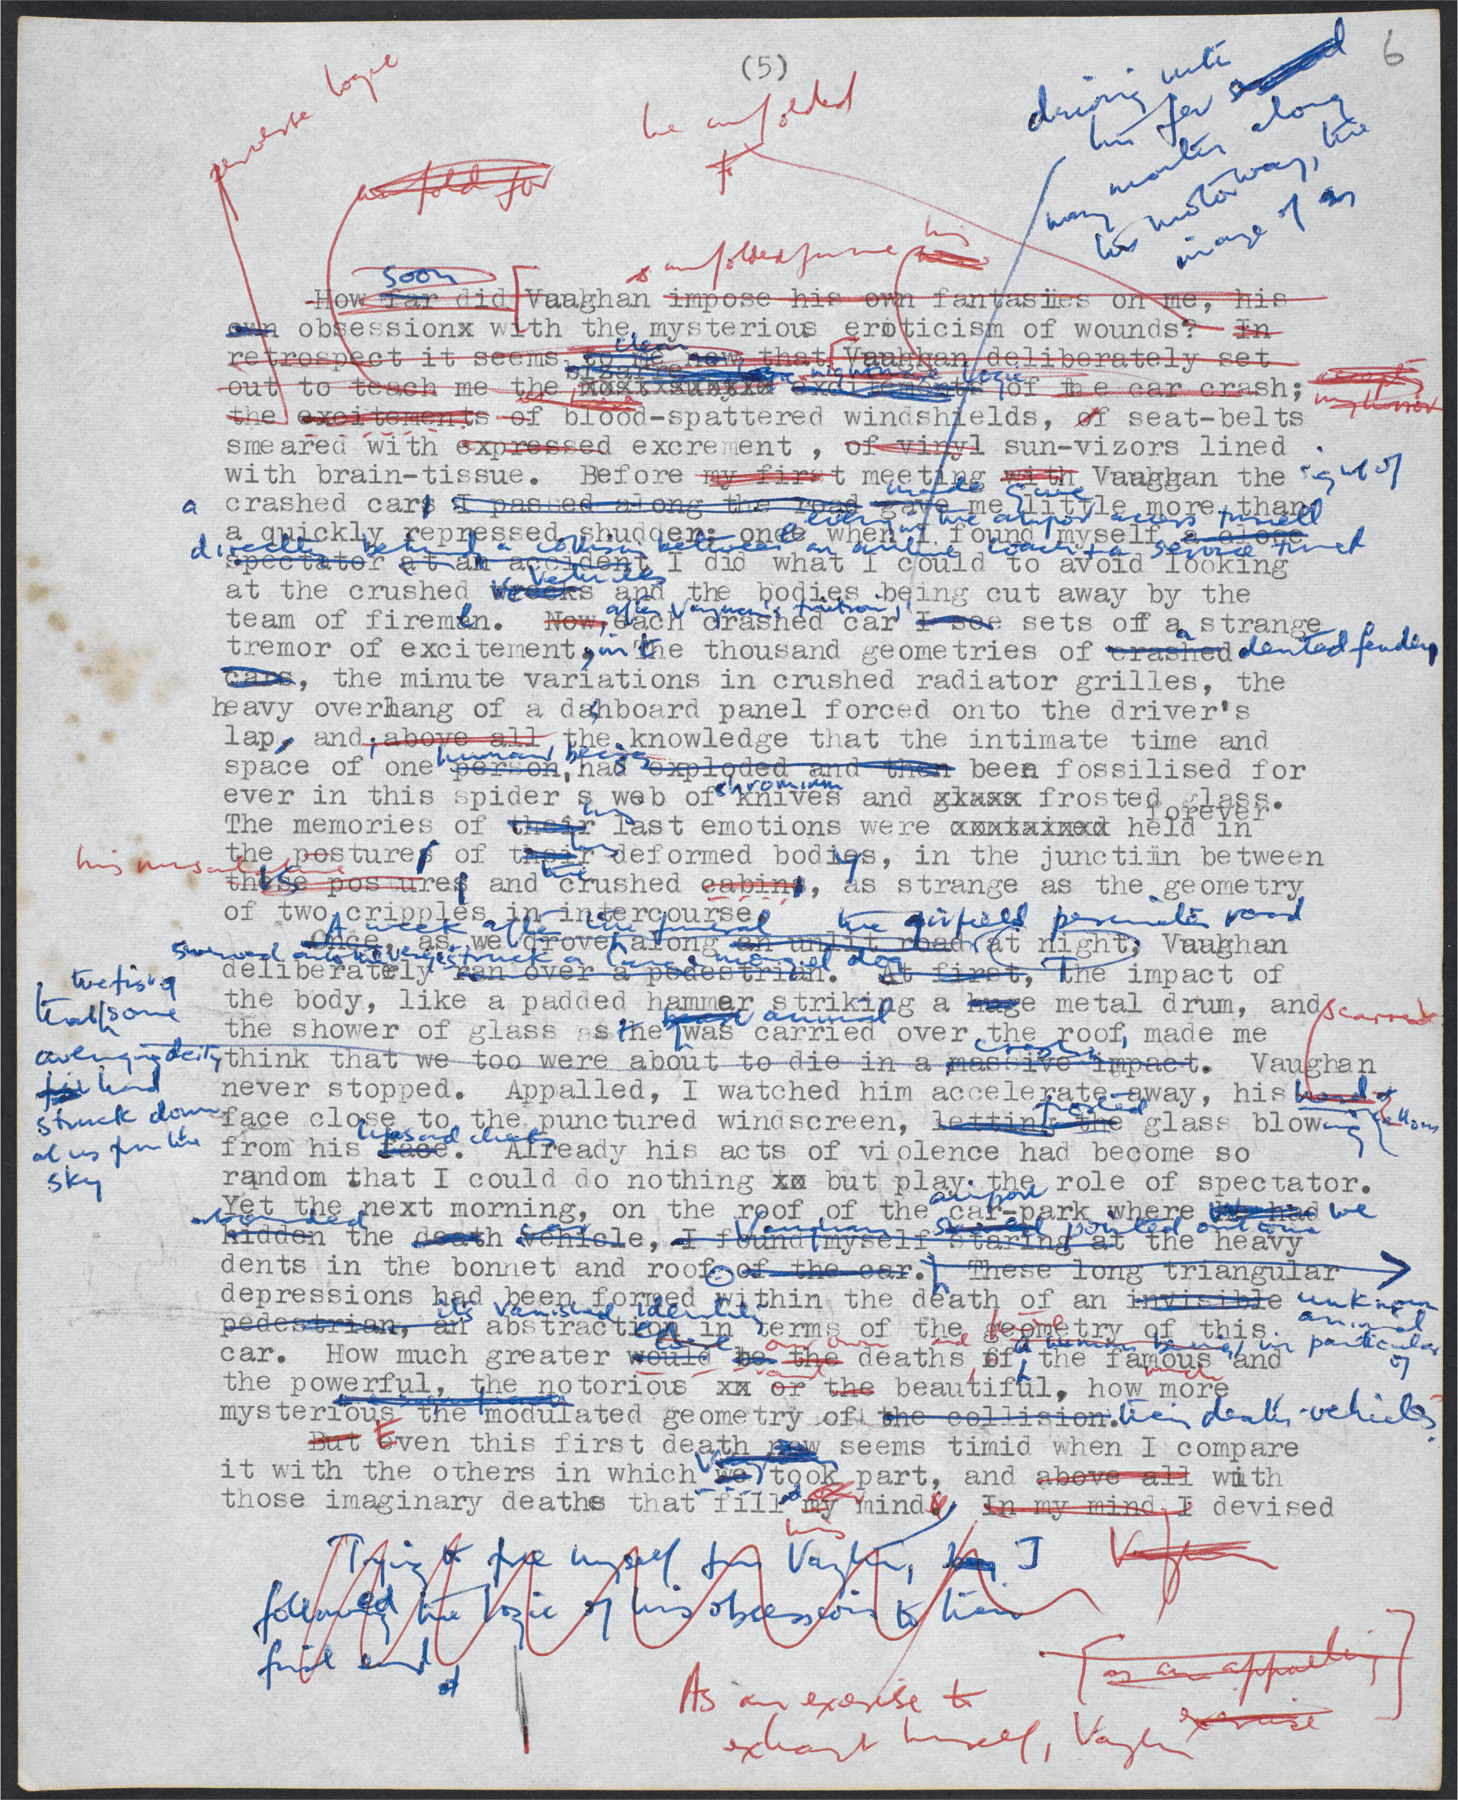 (5)
6
perverse logic
he unfolded
unfold for
driving with
his for
many months along
his motorway, the
image of an
unfolded for me his
soon
How far did Vaughan impose his own fantasies on me, his
own obsessionx with the mysterious eroticism of wounds? In
clear
retrospect it seems to me now that Vaughan deliberately set
bizarre
out to teach me the excitements of the car crash;
my horror
the excitements of blood-spattered windshields, of seat-belts
smeared with expressed excrement , of vinyl sun-vizors lined
with brain-tissue. Before my first meeting with Vaughan the sight of
a crashed cars I passed along the road made gave me little more than
a quickly repressed shudder; once when I found myself a close
the airport access tunnel
directly behind a collision between an airline coach & a service
spectator at an accident I did what I could to avoid looking
vehicles
at the crushed wrecks and the bodies being cut away by the
after Vaughan's tuition,
team of firemen. Now, each crashed car I see sets off a strange
tremor of excitement, in the thousand geometries of a crashed dented fender,
cars, the minute variations in crushed radiator grilles, the
heavy overhang of a dashboard panel forced onto the driver's
lap, and, above all the knowledge that the intimate time and
human being
space of one person, had exploded and then been fossilised for
chromium
ever in this spider s web of knives and gxaxx frosted glass.
forever
his
The memories of their last emotions were xxxtaixed held in
his
the postures of their deformed bodies, in the junctiin between
the
these postures and crushed cabins, as strange as the geometry
of two cripples in intercourse.
A week after the funeral the airfield perimeter road
Once, as we drove along an unlit road at night, Vaughan
swerved onto the verge & struck a large mongrel dog
deliberately ran over a pedestrian. At first, The impact of
the body, like a padded hammer striking a huge metal drum, and
animal
the shower of glass as the was carried over the roof, made me
crash
think that we too were about to die in a massive impact. Vaughan
never stopped. Appalled, I watched him accelerate away, his
scarred
face close to the punctured windscreen, letting the frosted glass blowing
lips and cheeks
from his face. Already his acts of violence had become so
random that I could do nothing xx but play the role of spectator.
airport
Yet the next morning, on the roof of the car-park where we had we
abandoned car Vaughan pointed out to me
hidden the death vehicle, I found myself staring at the heavy
dents in the bonnet and roof of the car. These long triangular
depressions had been formed within the death of an invisible unknown
animal
its vanished identity
pedestrian, an abstraction in terms of the geometry of this
a human being, in particular of
car. How much greater would be the deaths of the famous and
our own
the powerful, the notorious xx or the beautiful, how more
much
mysterious the modulated geometry of the collision. their death-vehicles.
But Even this first death now seems timid when I compare
it with the others in which we took part, and above all with
those imaginary deaths that fill my mind. In my mind I devised
his
the fist of
some
avenging deity
had
struck down
at us from the
sky
Trying to free myself from Vaughan, I
followed the logic of his obsessions to their
final end
Vaughan
as an appalling
exercise
As an exercise to
exhaust himself, Vaughan